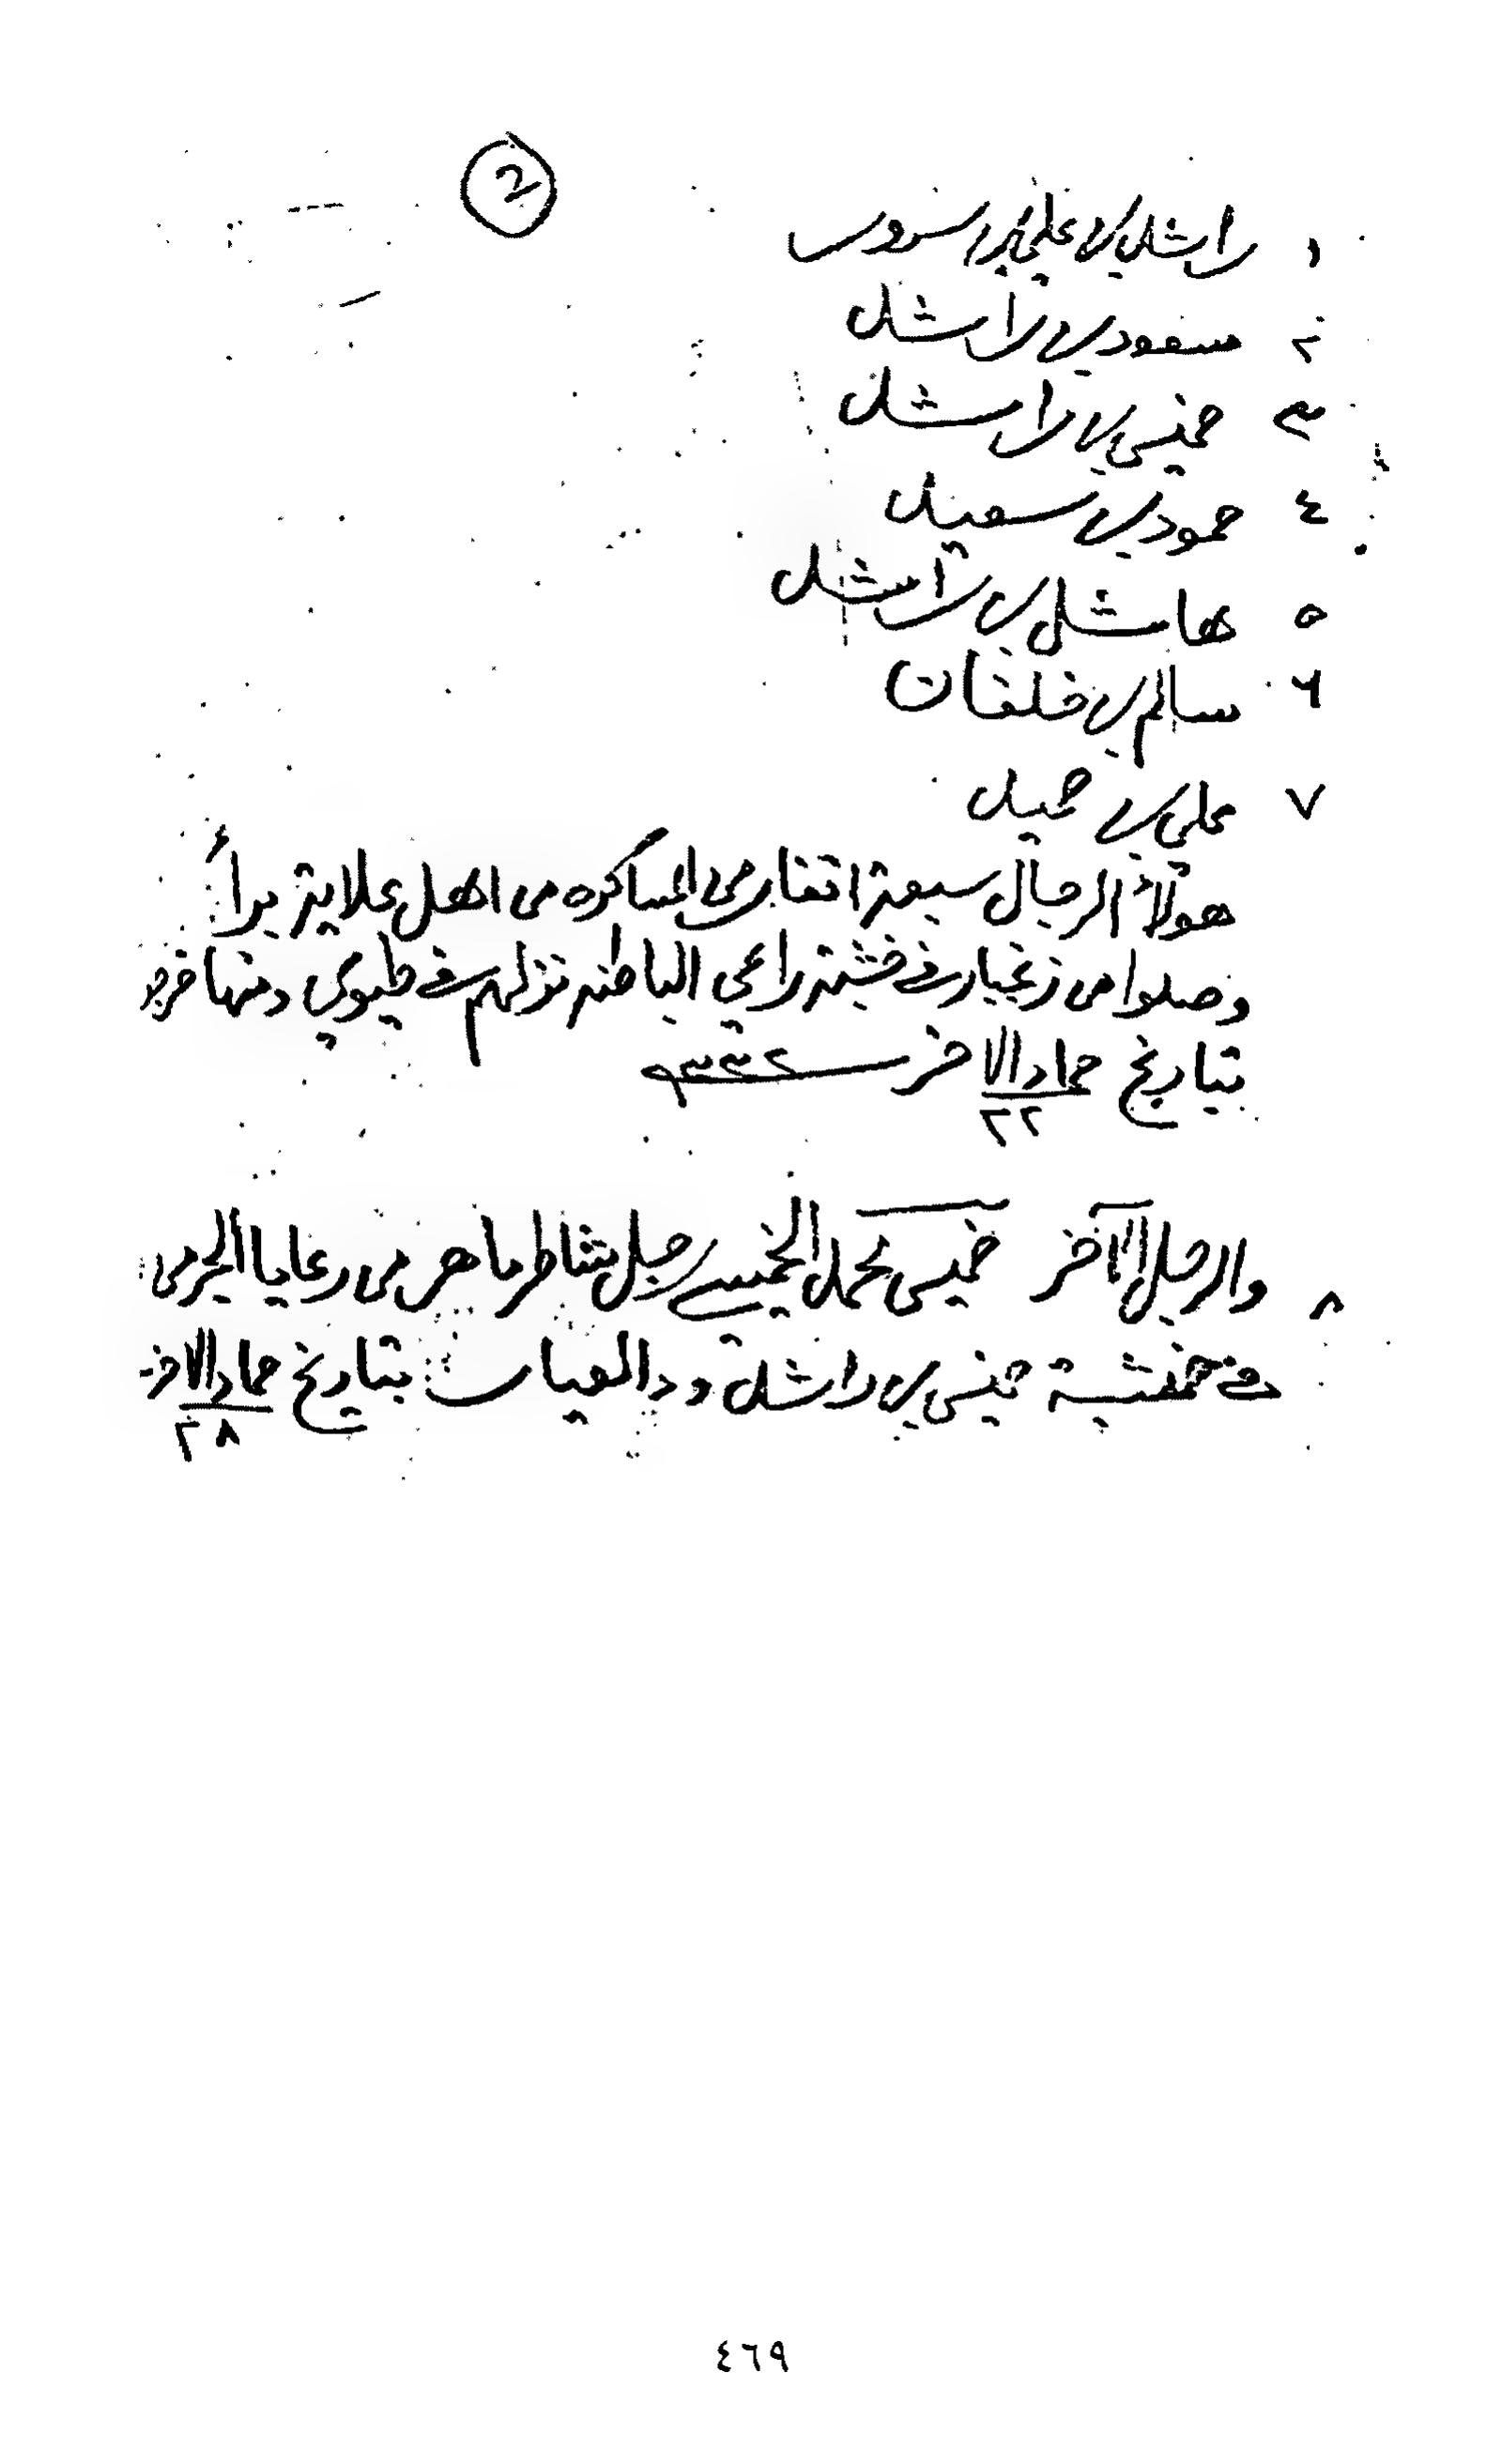 2
١ راشد بن علي بن سرور
٢ سعود بن راشد
٣ خميس بن راشد
٤ حمود بن سعيد
٥ هاشل بن راشد
٦ سالم بن خلفان
٧ علي بن حميد
هولاء الرجال سبعة انفار من المساكره من اهل علاية برأ
وصلوا من زنجبار في خشبة راعي الباطنه نزلهم في طيوي ومنها
بتاريخ جماد الاخر
٢٢
٨ والرجل الآخر خميس محمد الخميسي رجل شاطر ماهر من رعايا
في خشبة خميس بن راشد بتاريخ جماد الاخر
٢٨
٤٦٩